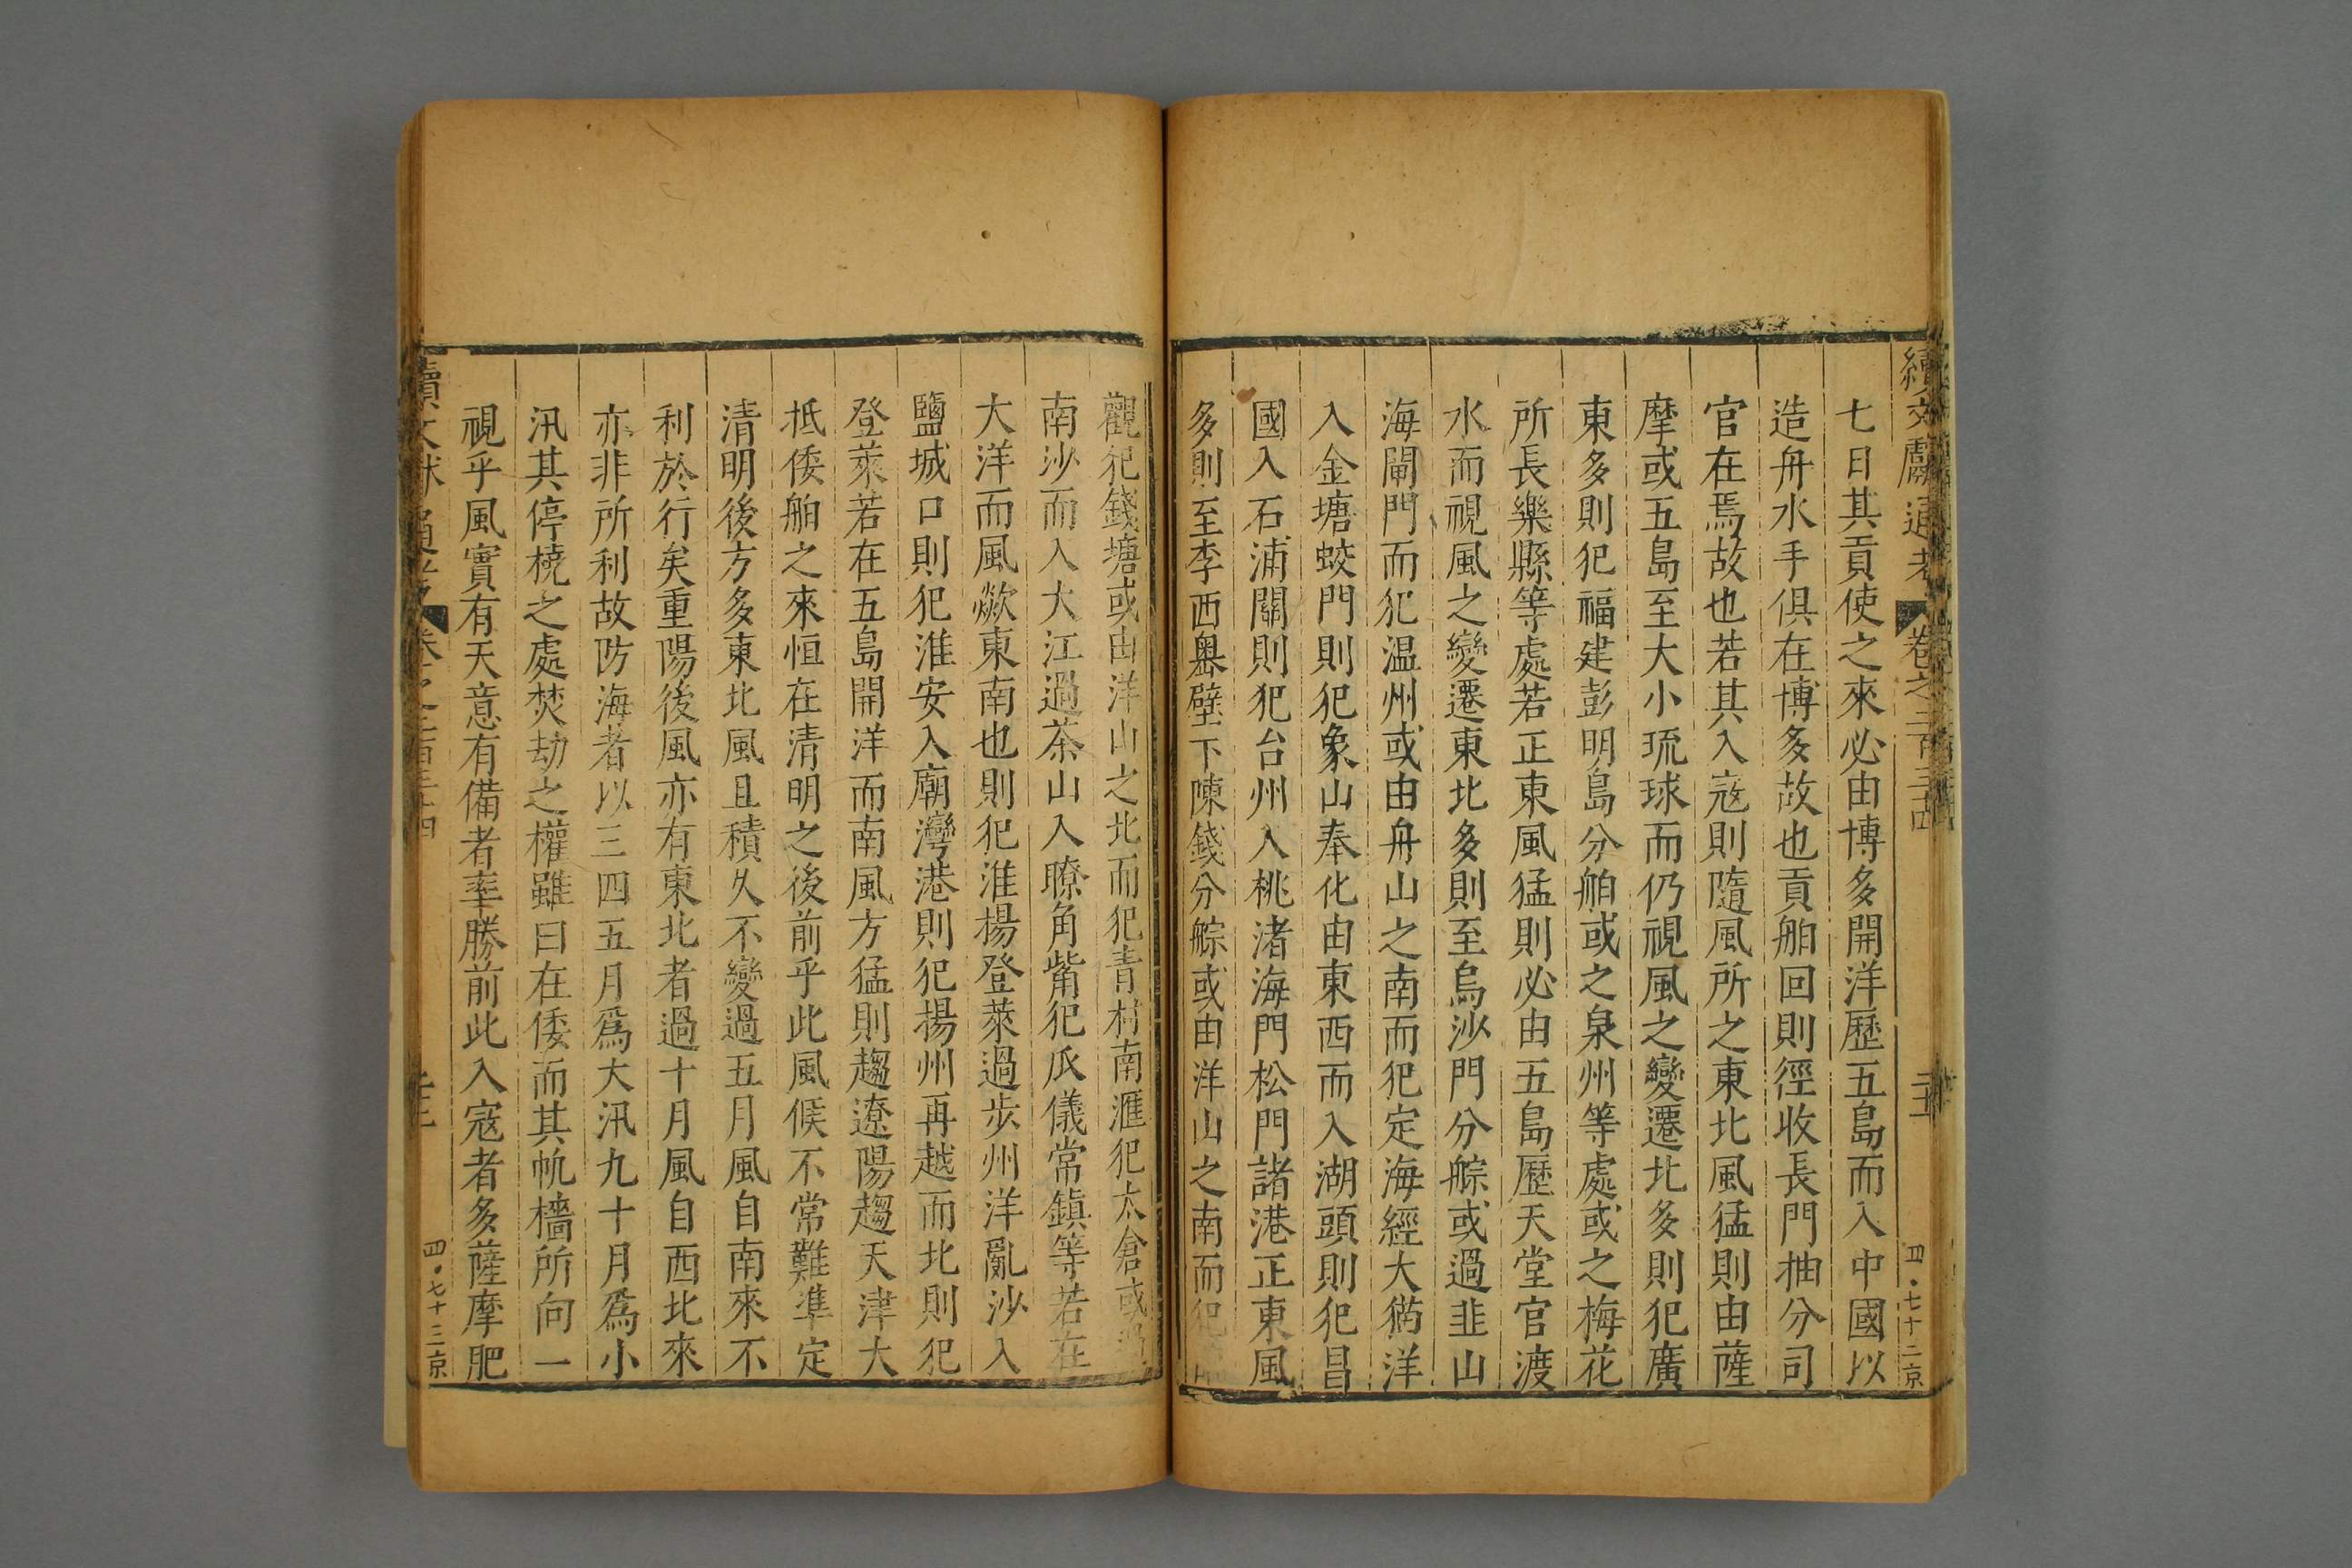 續文獻通考 卷之二百三十四
四・七十二京
七日其貢使之來必由博多開洋歷五島而入中國以
造舟水手俱在博多故也貢舶回則徑收長門抽分司
官在焉故也若其入寇則隨風所之東北風猛則由薩
摩或五島至大小琉球而仍視風之變遷北多則犯廣
東多則犯福建彭明島分舶或之泉州等處或之梅花
所長樂縣等處若正東風猛則必由五島歷天堂官渡
水而視風之變遷東北多則至烏沙門分䑸或過韭山
海閘門而犯溫州或由舟山之南而犯定海經大猫洋
入金塘蛟門則犯象山奉化由東西而入湖頭則犯昌
國入石浦關則犯台州入桃渚海門松門諸港正東風
多則至李西嶴壁下陳錢分䑸或由洋山之南而犯
觀犯錢塘或由洋山之北而犯青村南滙犯太倉或過
南沙而入大江過茶山入瞭角觜犯瓜儀常鎮等若在
大洋而風歘東南也則犯淮揚登萊過步州洋亂沙入
鹽城口則犯淮安入廟灣港則犯揚州再越而北則犯
登萊若在五島開洋而南風方猛則趨遼陽趨天津大
抵倭舶之來恒在清明之後前乎此風候不常難準定
清明後方多東北風且積久不變過五月風自南來不
利於行矣重陽後風亦有東北者過十月風自西北來
亦非所利故防海者以三四五月爲大汛九十月爲小
汛其停橈之處焚劫之權雖曰在倭而其帆檣所向一
視乎風實有天意有備者率勝前此入寇者多薩摩肥
續文獻通考 卷之二百三十四
四・七十三京